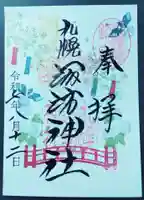 奉拝
札幌
諏訪神社
令和年八月十二日